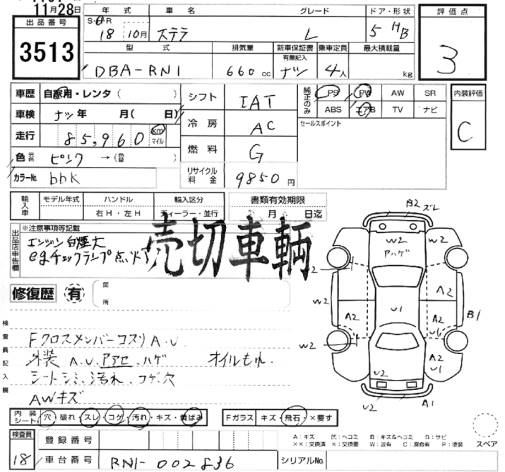 11月28日
出品番号
3513
年式 車名 グレード ドア・形状 評価点
18 10月 ステラ L 5 HB 3
型式 排気量 新車保証書 有無記入 乗車定員 最大積載量
DBA-RN1 660 cc ナシ 4人 kg
車歴 自家用・レンタ ( )
シフト IAT
純正のみ PS PW AW SR
ABS エアB TV ナビ
内装評価 C
車検 ナシ 年 月( 日)
冷房 AC
セールスポイント
走行 85,960 km マイル
燃料 G
色 元色 ピンク →(替 )
カラーNo bbk
リサイクル料金 9850 円
輸入車 モデル年式 ハンドル 輸入区分 書類有効期限
右H・左H ディーラー・並行 月 日迄
出品店申告欄
※注意事項等記載
エンジン白煙大
egチェックランプ点灯
売切車輌
修復歴 有 箇所
検査員記入欄
FクロスメンバーコスリA.U.
外装 A.U.アセ.ハゲ オイルもれ
シートシミ.汚れ.コゲ穴
AWキズ
A2 ズレ
W2 W2
アハゲ
W2 A2 A2
U1 B1
A2 A2
W2 W2
U2
U2 A1
内装シート 穴・破れ・スレ・コゲ・汚れ・キズ・黄ばみ
Fガラス キズ・飛石・×要す
スペア
検査員 18
登録番号
車台番号 RN1-002836
シリアルNo
A:キズ U:ヘコミ B:キズ&ヘコミ G:サビ